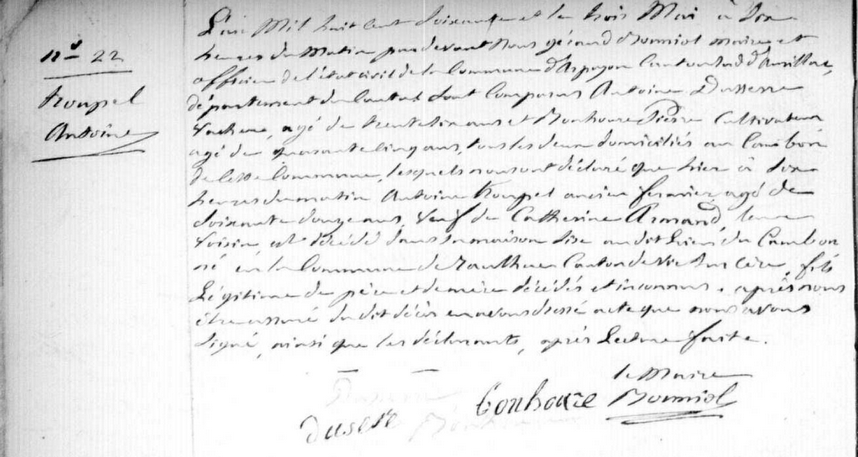 n° 22
Roupel
Antoine
L'an Mil huit cent soixante et le trois Mai à dix
heures du Matin pardevant Nous Gérard Bonniol maire et
officier de l'état civil de la Commune d'Arpajon Canton Sud d'Aurillac,
département du Cantal sont Comparus Antoine Dusserre
Vacher, agé de trente ans et Bonhoure Pierre Cultivateur
agé de quarante cinq ans, tous les deux domiciliés au Cambon
de cette Commune, lesquels nous ont déclaré que hier à dix
heures du matin Antoine Roupel ancien fermier, agé de
soixante douze ans, Veuf de Catherine Armand, leur
Voisin est décédé dans sa maison sise au dit lieu du Cambon
né en la Commune de Canton de Vic sur Cère, fils
Légitime de père et de mère décédés et inconnus. après nous
être assuré du dit décès en avons dressé acte que nous avons
Signé, ainsi que les déclarants, après Lecture faite.
le Maire
Duserre Bonhoure Bonniol